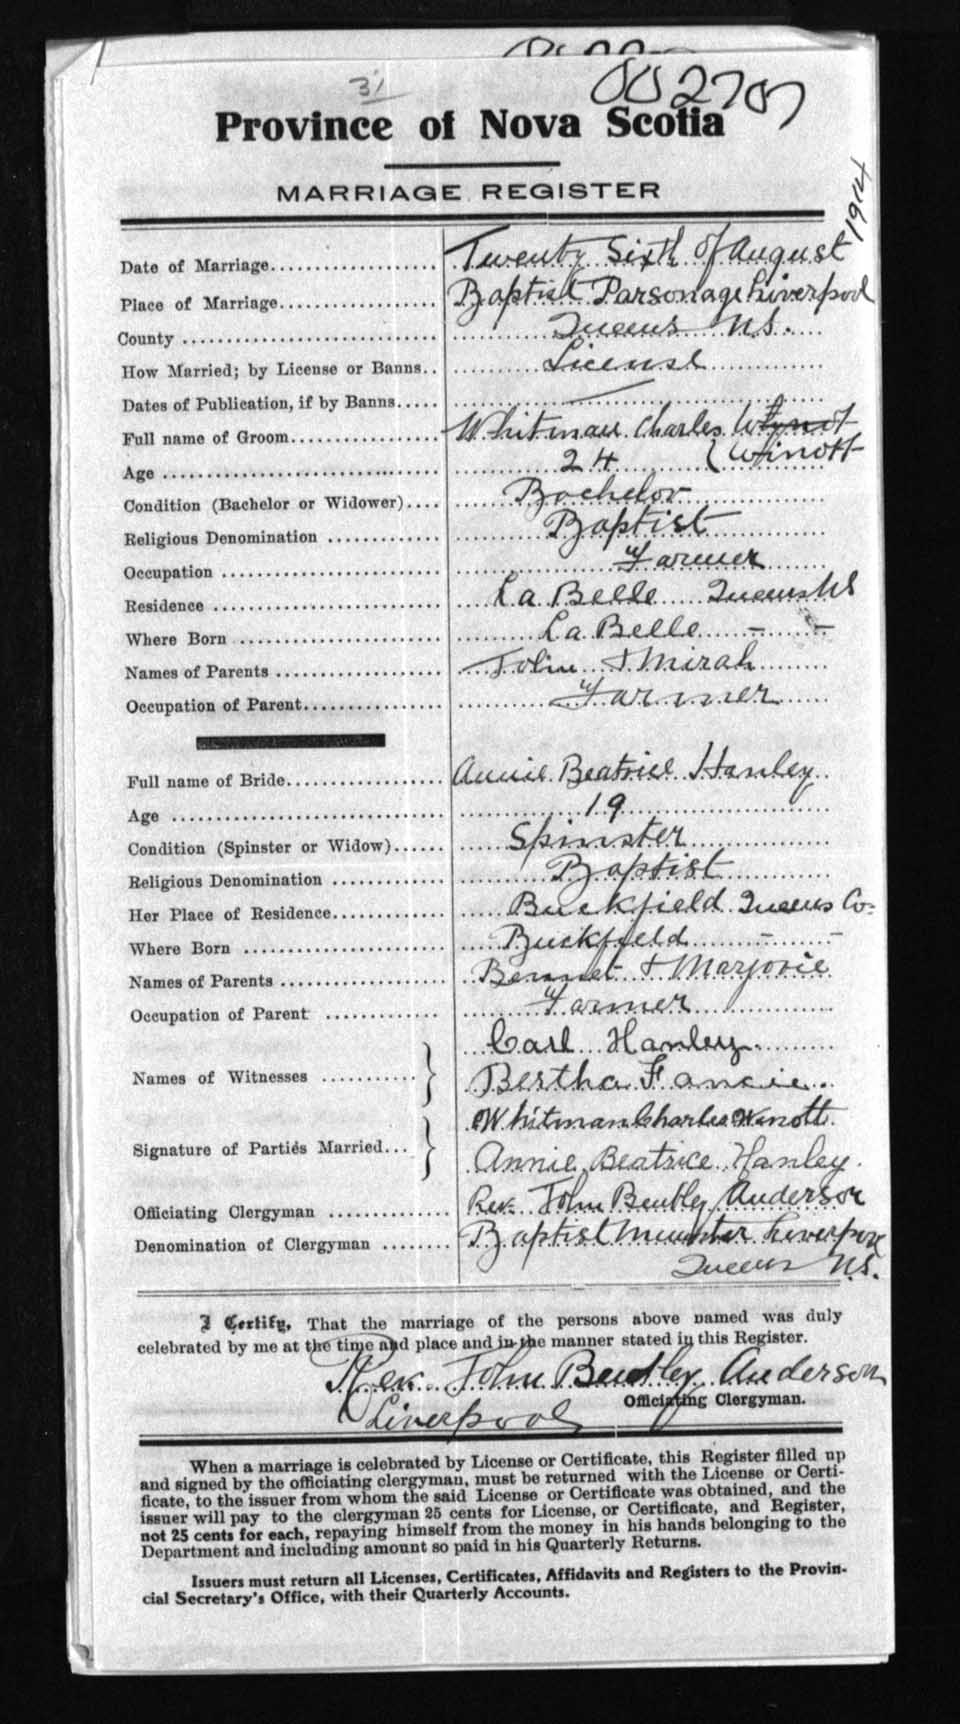 31
002707
Province of Nova Scotia
MARRIAGE REGISTER
1914
Date of Marriage Twenty Sixth of August
Place of Marriage Baptist Parsonage Liverpool
County Queens N.S.
How Married; by License or Banns License
Dates of Publication, if by Banns —
Full name of Groom Whitman Charles Wynot
(Winott
Age 24
Condition (Bachelor or Widower) Bachelor
Religious Denomination Baptist
Occupation Farmer
Residence La Belle Queens NS
Where Born La Belle - -
Names of Parents John + Mirah
Occupation of Parent Farmer
Full name of Bride Annie Beatrice Hanley
Age 19
Condition (Spinster or Widow) Spinster
Religious Denomination Baptist
Her Place of Residence Buckfield Queens Co-
Where Born Buckfield - -
Names of Parents Bennet + Marjorie
Occupation of Parent Farmer
Names of Witnesses } Carl Hanley
Bertha Fancie.
Signature of Parties Married } Whitman Charles Winott
Annie Beatrice Hanley.
Officiating Clergyman Rev. John Bentley Anderson
Denomination of Clergyman Baptist Minister Liverpool
Queens N.S.
I Certify, That the marriage of the persons above named was duly
celebrated by me at the time and place and in the manner stated in this Register.
Rev. John Bentley Anderson
Officiating Clergyman.
Liverpool
When a marriage is celebrated by License or Certificate, this Register filled up
and signed by the officiating clergyman, must be returned with the License or Certi-
ficate, to the issuer from whom the said License or Certificate was obtained, and the
issuer will pay to the clergyman 25 cents for License, or Certificate, and Register,
not 25 cents for each, repaying himself from the money in his hands belonging to the
Department and including amount so paid in his Quarterly Returns.
Issuers must return all Licenses, Certificates, Affidavits and Registers to the Provin-
cial Secretary's Office, with their Quarterly Accounts.